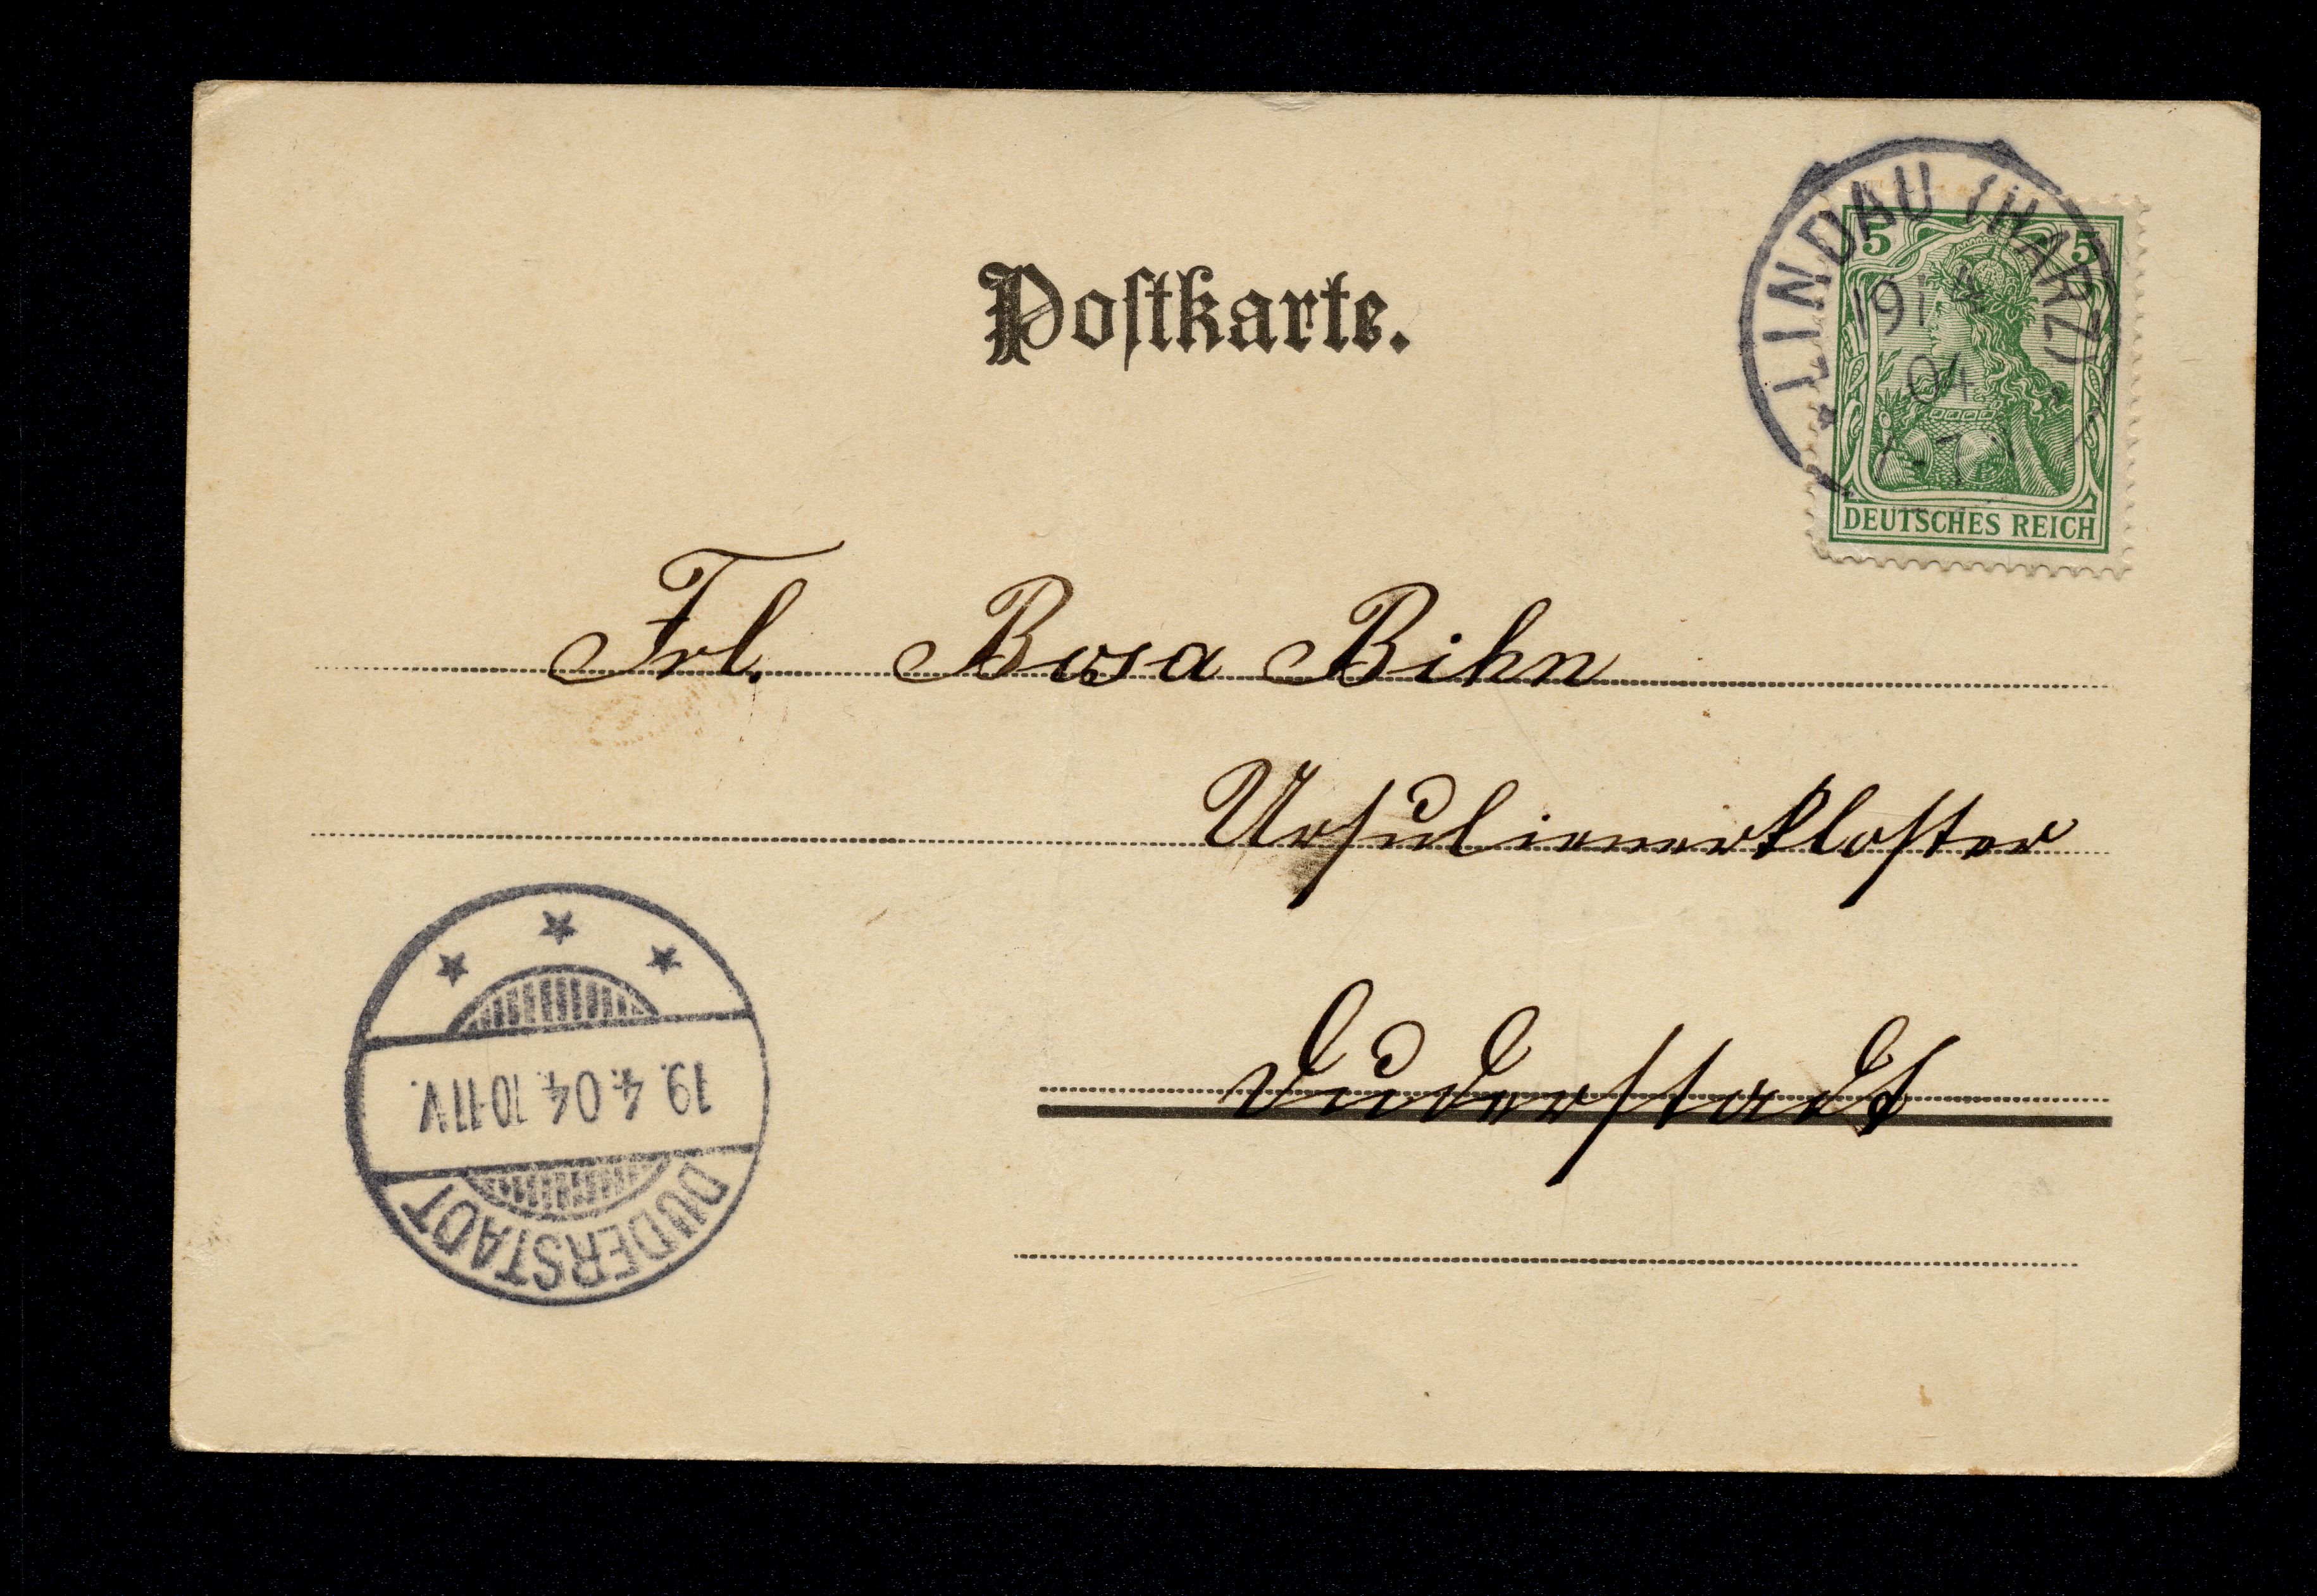 Postkarte.
LINDAU (HARZ)
19 4
04
5 5
DEUTSCHES REICH
Frl. Rosa Bihn
Ursulinerkloster
Duderstadt
19.4.04.10-11V.
DUDERSTADT